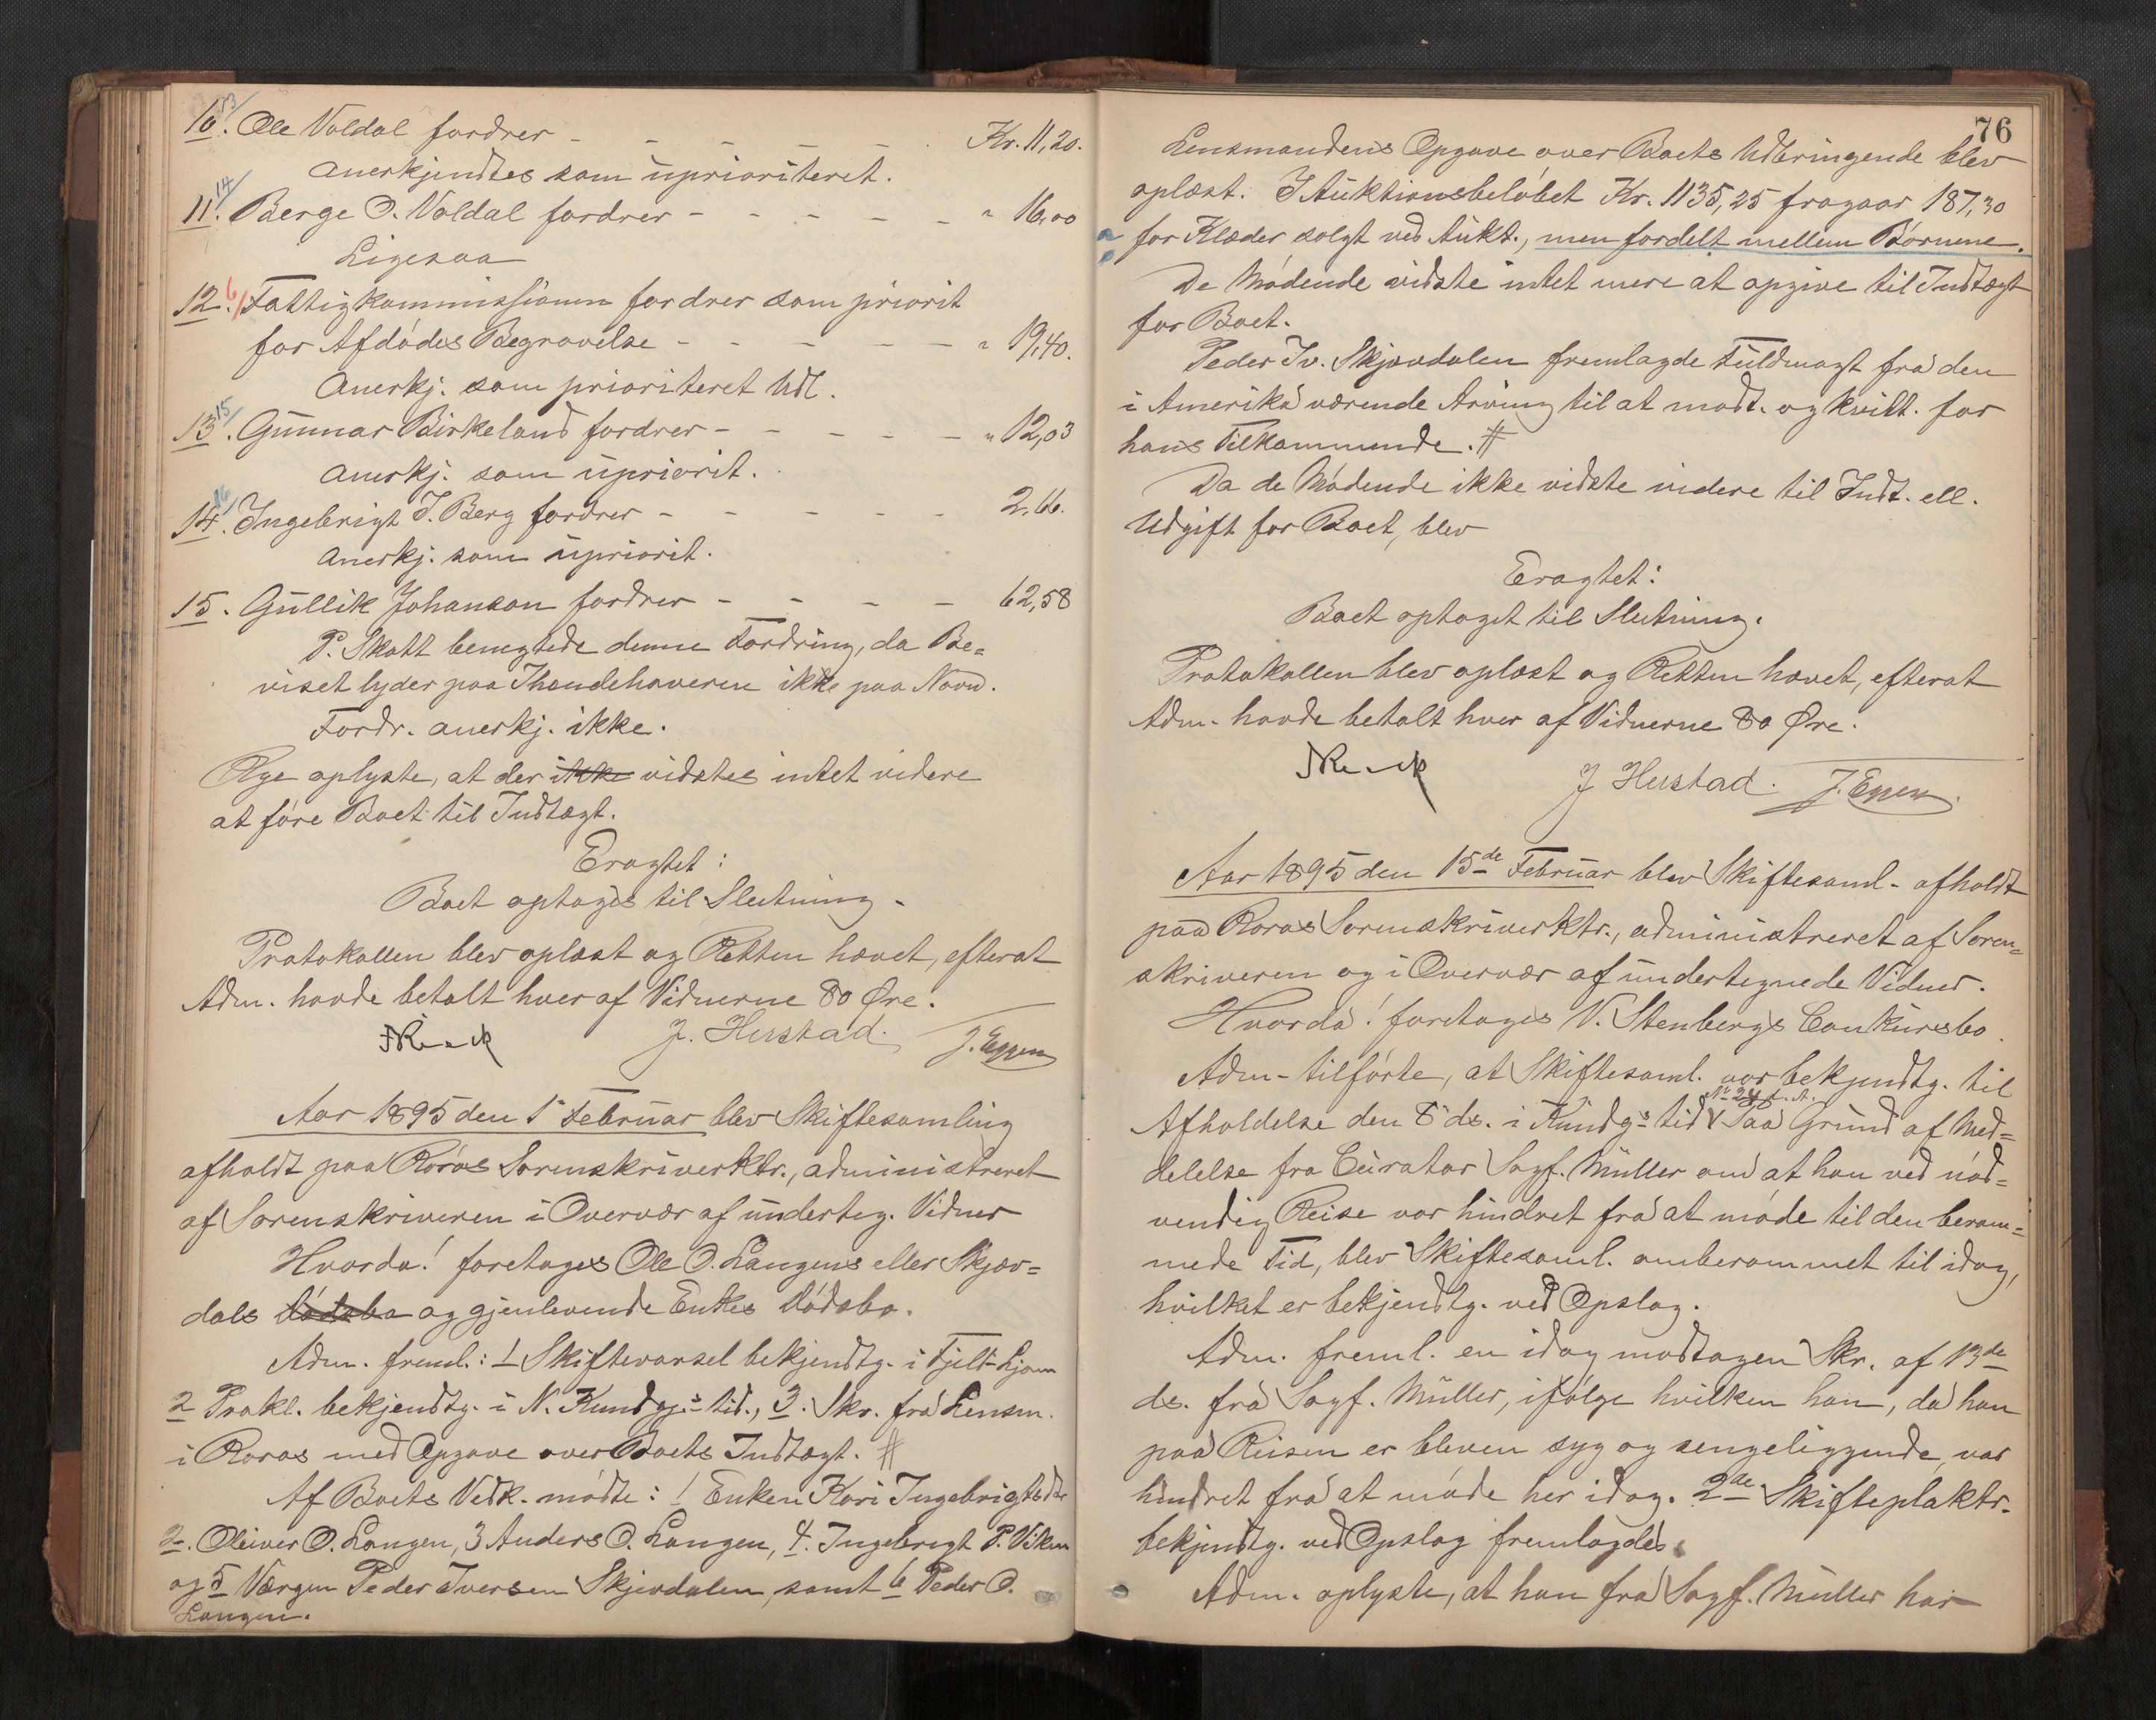 13/
10. Ole Voldal fordrer - - - - - Kr. 11,20.
Anerkjendtes som uprioriteret.
14/
11. Berge O. Voldal fordrer - - - - - " 16,00
Ligesaa
12. 6/ Fattigkommissionen fordrer som priorit
for Afdødes Begravelse - - - - - " 19,40.
Anerkj. som prioriteret Udl.
15/
13. Gunnar Birkeland fordrer - - - - - " 12,03
Anerkj. som upriorit.
16/
14. Ingebrigt J. Berg fordrer - - - - - 2.66.
Anerkj. som upriorit.
15. Gullik Johanson fordrer - - - - 62,58
P. Skott benegtede denne Fordring, da Be=
viset lyder paa Ihændehaveren ikke paa Navn.
Fordr. anerkj. ikke.
Rye oplyste, at der ikke vidstes intet videre
at føre Boet til Indtægt.
Eragtet:
Boet optages til Slutning.
Protokollen blev oplæst og Retten hævet, efterat
Adm. havde betalt hver af Vidnerne 80 Øre.
J. Herstad. J. Eggen
Aar 1895 den 1ste Februar blev Skiftesamling
afholdt paa Røros Sorenskriverktr., administreret
af Sorenskriveren i Overvær af underteg. Vidner
Hvorda! foretages Ole O. Langens eller Skjæv=
dals Dødsbo og gjenlevende Enkes Dødsbo.
Adm. freml.: 1 Skiftevarsel bekjendtg. i Fjeld-Ljom
2 Prokl. bekjendtg. i N. Kundgj.s tid., 3. Skr. fra Lensm.
i Røros med Opgave over Boets Indtægt. #
Af Boets Vedk. mødte: 1 Enken Kari Ingebrigtsdtr
2. Oliver O. Langen, 3 Anders O. Langen, 4. Ingebrigt P. Viken
og 5 Værgen Peder Iversen Skjevdalen, samt 6 Peder O.
Langen.
76
Lensmandens Opgave over Boets Udbringende blev
oplæst. I Auktionsbeløbet Kr. 1135,25 fragaar 187,30
for Klæder solgt ved Aukt., men fordelt mellem Børnene.
De Mødende vidste intet mere at opgive til Indtægt
for Boet.
Peder Iv. Skjævdalen fremlagde Fuldmagt fra den
i Amerika værende Arving til at modt. og kvitt. for
hans Tilkommende. #
Da de Mødende ikke vidste videre til Indt. ell.
Udgift for Boet, blev
Eragtet:
Boet optaget til Slutning.
Protokollen blev oplæst og Retten hævet, efterat
Adm. havde betalt hver af Vidnerne 80 Øre.
J Herstad. J. Eggen.
Aar 1895 den 15de Februar blev Skiftesaml. afholdt
paa Røros Sorenskriverktr., administreret af Soren=
skriveren og i Overvær af undertegnede Vidner.
Hvorda! foretages V. Stenbergs Conkursbo.
Adm. tilførte, at Skiftesaml. var bekjendtg. til
Afholdelse den 8de ds. i Kundgs tid Paa Grund af Med=
delelse fra Curator Sagf. Müller om at han ved nød=
vendig Reise var hindret fra at møde til den beram=
mede Tid, blev Skiftesaml. omberammet til idag,
hvilket er bekjendtg. ved Opslag.
Adm. freml. en idag modtagen Skr. af 13de
ds. fra Sagf. Müller, ifølge hvilken han, da han
paa Reisen er bleven syg og sengeliggende, var
hindret fra at møde her idag. 2de Skifteplaktr.
bekjendtg. ved Opslag fremlagdes.
Adm. oplyste, at han fra Sagf. Müller har